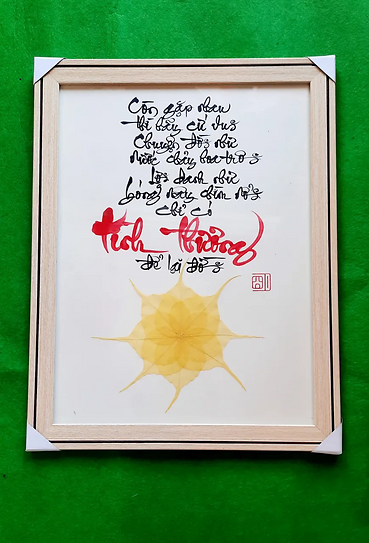 Còn gặp nhau
thì hãy cứ vui
Chuyện đời như
nước chảy hoa trôi
Lợi danh như
bóng mây chìm nổi
Chỉ có
tình thương
để lại đời